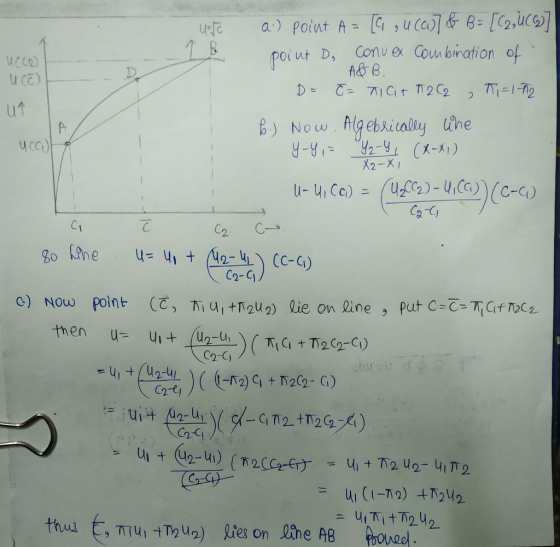 a.) point A = [C₁, u(C₁)] & B = [C₂, u(C₂)]
point D, Convex Combination of
A&B.
D = C̅ = π₁C₁ + π₂C₂ , π₁ = 1-π₂
b.) Now Algebrically line
y-y₁ = (y₂-y₁)/(x₂-x₁) (x-x₁)
u - u₁(C₁) = ((u₂(C₂) - u₁(C₁))/(C₂-C₁)) (C-C₁)
u=√c
B
u(C₂)
D
u(C̅)
u↑
A
u(C₁)
C₁ C̅ C₂ C→
So line u = u₁ + ((u₂-u₁)/(C₂-C₁)) (C-C₁)
c) Now point (C̅, π₁u₁+π₂u₂) lie on line, put C = C̅ = π₁C₁+π₂C₂
then u = u₁ + ((u₂-u₁)/(C₂-C₁)) (π₁C₁ + π₂C₂ - C₁)
= u₁ + ((u₂-u₁)/(C₂-C₁)) ((1-π₂)C₁ + π₂C₂ - C₁)
= u₁ + ((u₂-u₁)/(C₂-C₁)) (C₁ - C₁π₂ + π₂C₂ - C₁)
= u₁ + ((u₂-u₁)/(C₂-C₁)) (π₂(C₂-C₁) = u₁ + π₂u₂ - u₁π₂
= u₁(1-π₂) + π₂u₂
= u₁π₁ + π₂u₂
thus (C̅, π₁u₁ + π₂u₂) lies on line AB Proved.